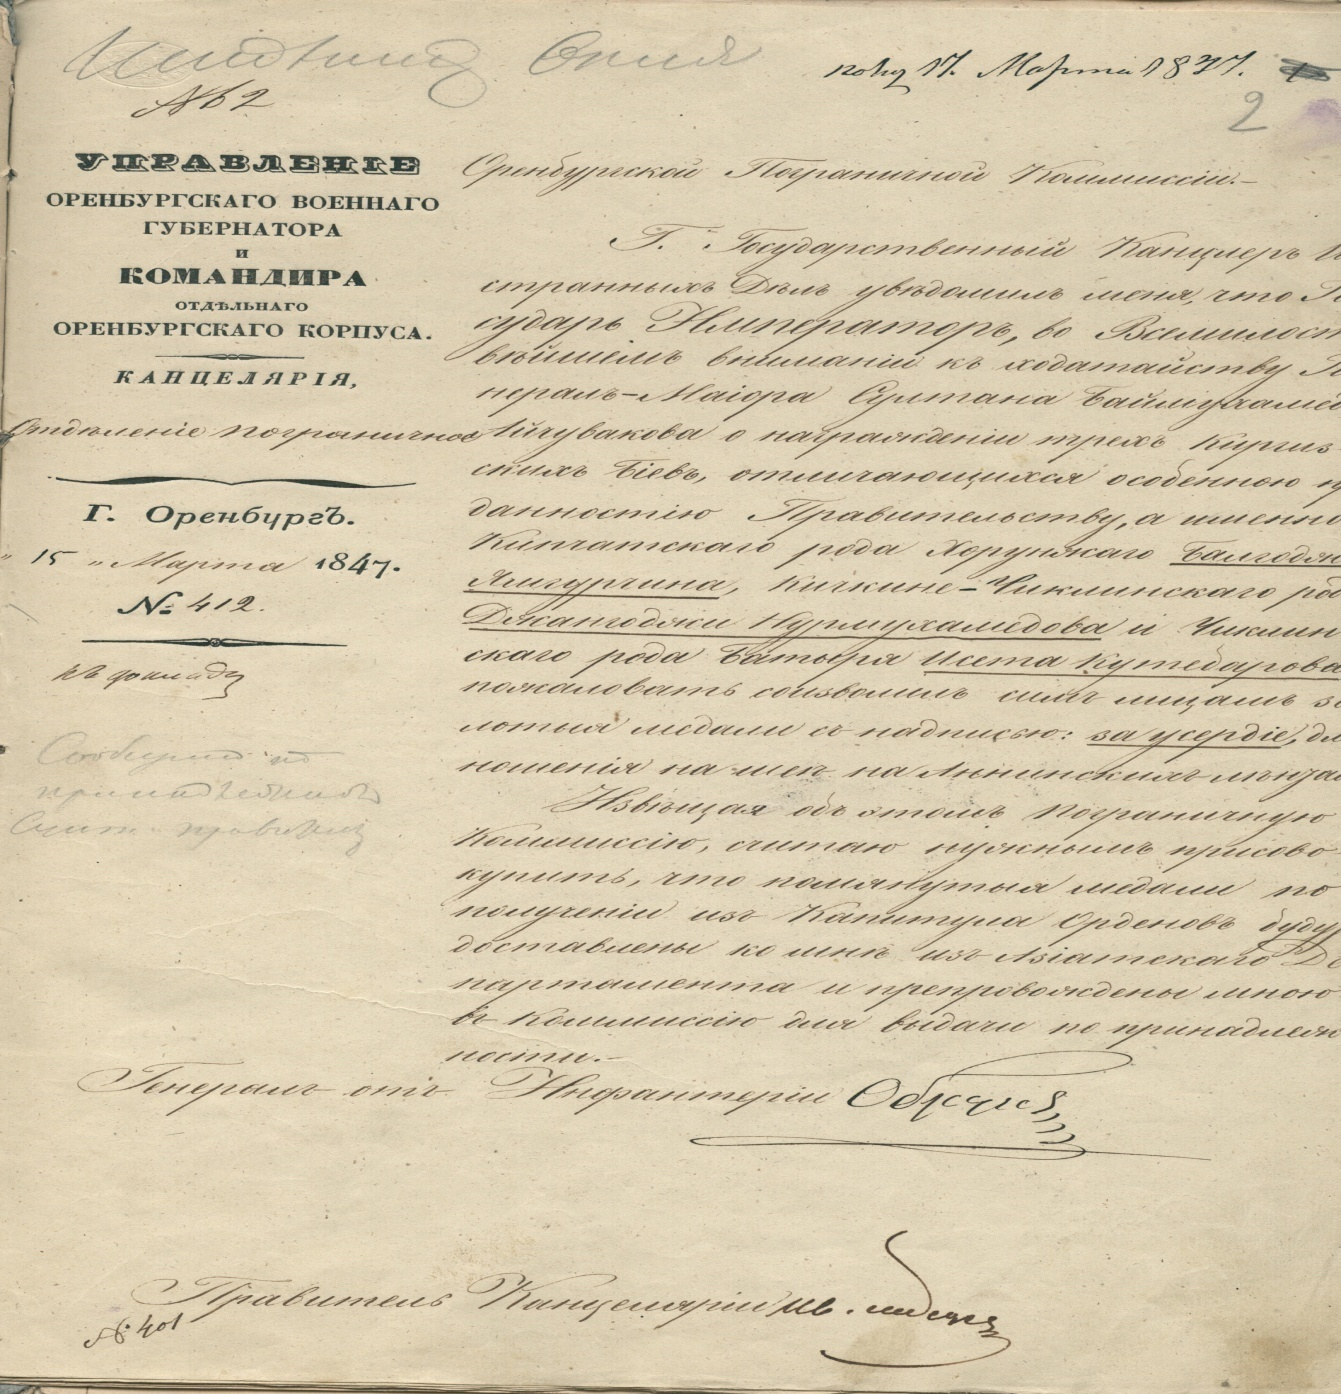 № 62
полу 17. Марта 1847.
2
УПРАВЛЕНІЕ
ОРЕНБУРГСКАГО ВОЕННАГО
ГУБЕРНАТОРА
И
КОМАНДИРА
ОТДѢЛЬНАГО
ОРЕНБУРГСКАГО КОРПУСА.
КАНЦЕЛЯРІЯ,
Отдѣленіе пограничное
Г. Оренбургъ.
" 15 " Марта 1847.
№ 412.
къ докладу
Оренбургской Пограничной Коммиссіи.—
Г. Государственный Канцлеръ И
странныхъ Дѣлъ увѣдомилъ меня, что Го
сударь Императоръ, во Всемилост
вѣйшемъ вниманіи къ ходатайству Ге
нералъ-Маіора Султана Баймухамед
Айчувакова о награжденіи трехъ Киргиз
скихъ Біевъ, отличающихся особенною пр
данностію Правительству, а именно
Кипчатскаго рода Хорунжаго Балгодж
Ямгурчина, Кичкине-Чиклинскаго ро
Джангоджи Нурмухамедова и Чиклин
скаго рода Батыря Исета Кутебарова
пожаловать соизволилъ симъ лицамъ зо
лотыя медали съ надписью: за усердіе, дл
ношенія на шеѣ на Аннинскихъ лентах
Извѣщая объ этомъ Пограничную
Коммиссію, считаю нужнымъ присово
купить, что помянутыя медали по
полученіи изъ Капитула Орденовъ буду
доставлены ко мнѣ изъ Азіатскаго Де
партамента и препровождены мною
въ Коммиссію для выдачи по принадлеж
ности.—
Генералъ отъ Инфантеріи Обручевъ
Правитель Канцеляріи
№ 401